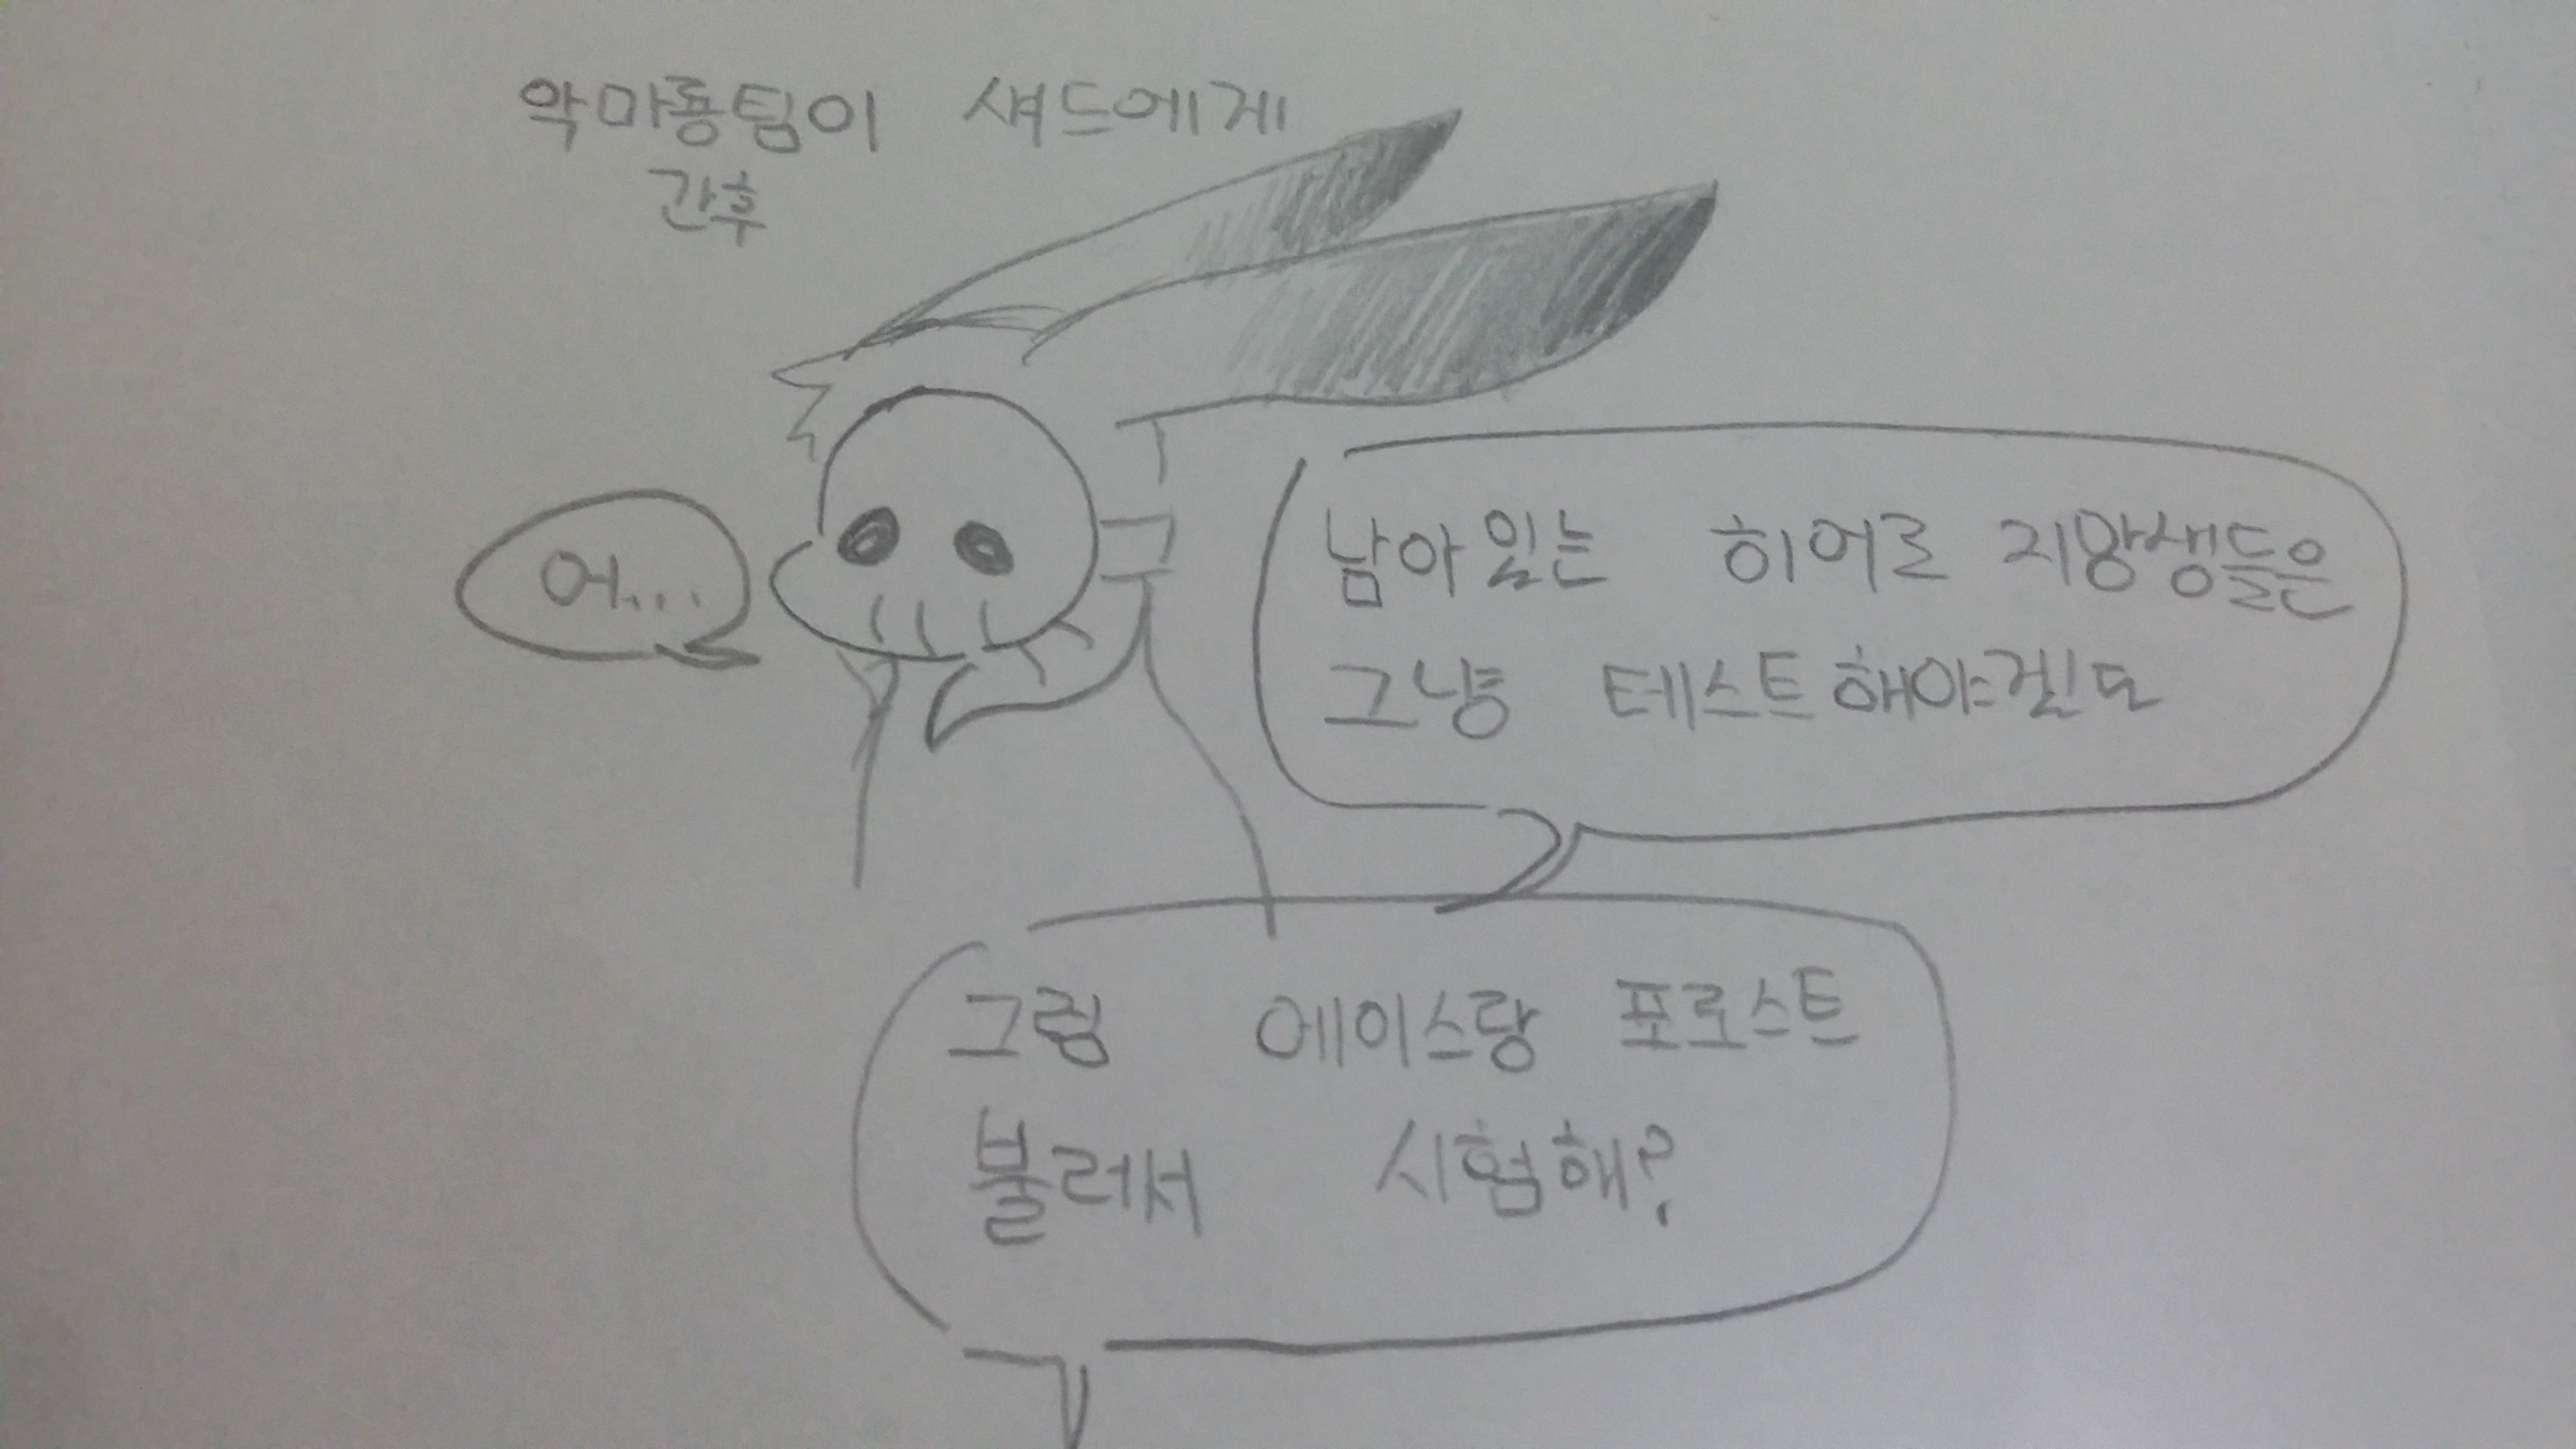 악마룡팀이 섀드에게
간후
어...
남아있는 히어로 지망생들은
그냥 테스트해야겠다
그럼 에이스랑 포로스트
불러서 시험해?